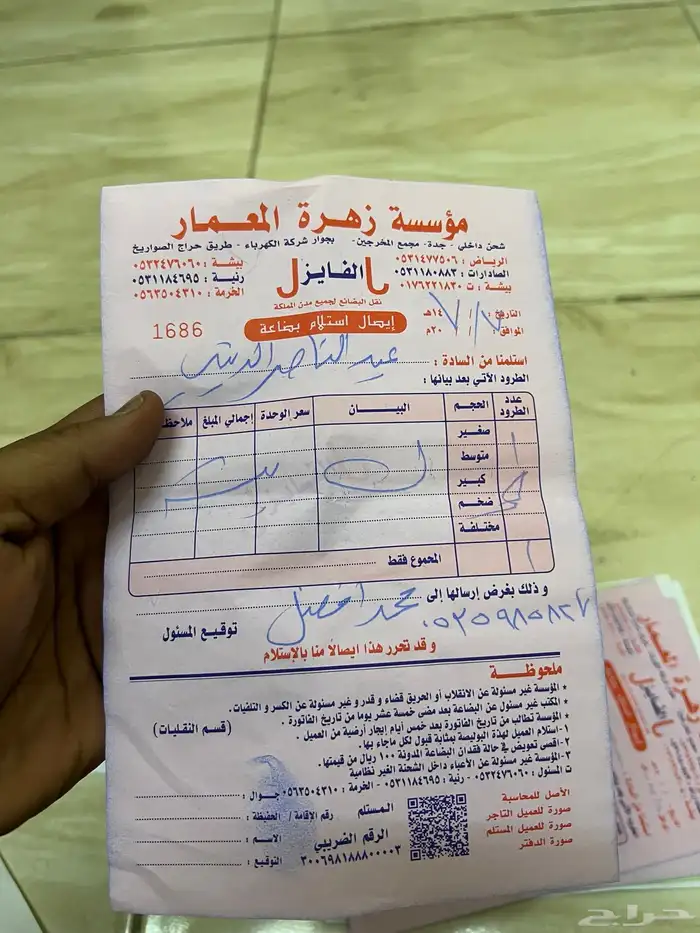 مؤسسة زهرة المعمار
شحن داخلي - جدة - مجمع المخرجين - بجوار شركة الكهرباء - طريق حراج الصواريخ
الرياض : ٠٥٣١٤٧٧٥٠٦
الصادارات : ٠٥٣١١٨٠٨٨٣
بيشة : ت ٠١٧٦٢٢١٨٣٠
الفايز
نقل البضائع لجميع مدن المملكة
بيشة : ٠٥٣٢٤٧٦٠٦٠
رنية : ٠٥٣١١٨٤٦٩٥
الخرمة : ٠٥٦٣٥٠٤٣١٠
إيصال استلام بضاعة
1686
التاريخ : ٧ / ١٤هـ
الموافق : ٢٠م
استلمنا من السادة :
الطرود الآتي بعد بيانها :
عدد الطرود الحجم البيان سعر الوحدة إجمالي المبلغ
صغير
متوسط
كبير
ضخم
مختلفة
المجموع فقط
و ذلك بغرض إرسالها إلى محمد
توقيع المسئول
و قد تحرر هذا ايصالًا منا بالإستلام
ملحوظة
* المؤسسة غير مسئولة عن الانقلاب أو الحريق قضاء و قدر و غير مسئولة عن الكسر و التلفيات.
* المكتب غير مسئول عن البضاعة بعد مضى خمسة عشر يوما من تاريخ الفاتورة .
* المؤسسة تطالب من تاريخ الفاتورة بعد خمس أيام إيجار أرضية من العميل .
١- استلام العميل لهذة البوليصة بمثابة قبول لكل ماجاء بها.
٢- اقصى تعويض في حالة فقدان البضاعة المدونة ١٠٠ ريال من قيمتها.
٣- المؤسسة غير مسئولة عن الأعباء داخل الشحنة الغير نظامية
ت المسئول : ٠٥٣٢٤٧٦٠٦٠ - رنية : ٠٥٣١١٨٤٦٩٥ - الخرمة : ٠٥٦٣٥٠٤٣١٠
(قسم النقليات)
الأصل للمحاسبة
صورة للعميل التاجر
صورة للعميل المستلم
صورة الدفتر
المستلم
الرقم الضريبي
٣٠٠٦٩٨١٨٨٨٠٠٠٠٣
جوال :
رقم الإقامة / الحفيظة :
الاسم :
التوقيع :
زهرة المعمار
الفايز
حراج